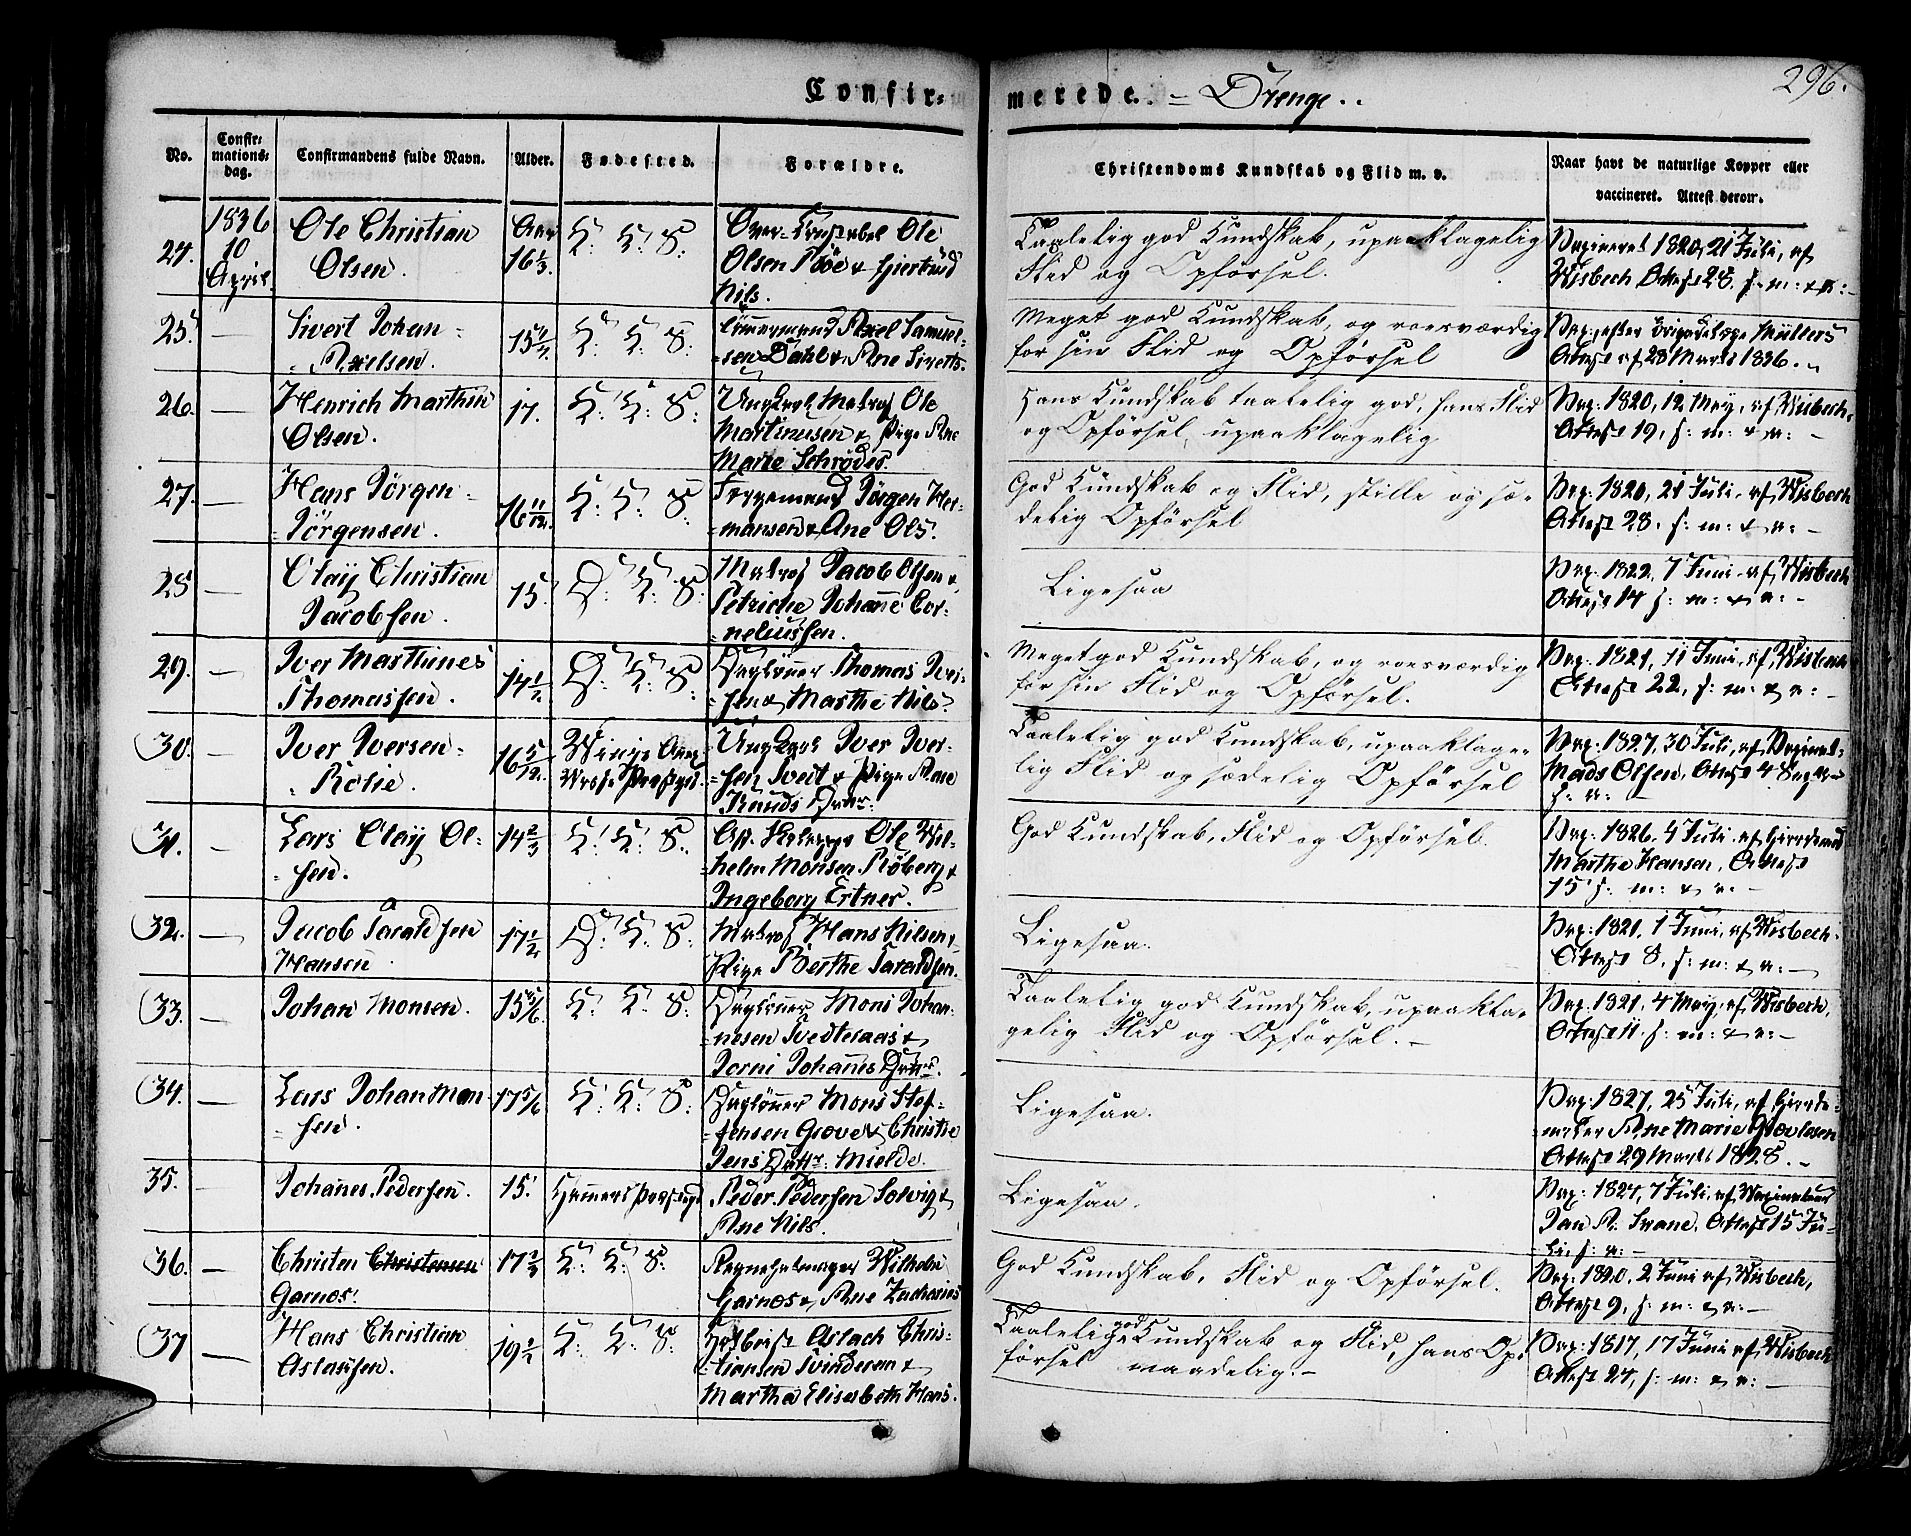 296.
Confirmerede. = Drenge..
No.
Confirmationsdag.
Confirmandens fulde Navn.
Alder.
Fødested.
Forældre.
Christendoms Kundskab og Flid m. v.
Naar havt de naturlige Kopper eller
vaccineret. Attest derom.
24.
1836
10
April.
Ole Christian
Olsen.
Aar
16 1/3.
K: K: S:
Olsen & Giertrud
Nils.
Taalelig god Kundskab, upaaklagelig
Flid og Opførsel.
Vaxineret 1820, 21 Juli, af
Wisbech Attest 28. s: m: & n: -
25.
—
Sivert Johan
Axelsen.
K: K: S:
Tömmermand Axel Samuel-
=sen Dahl & Ane Siverts.
Meget god Kundskab, og roesværdig
for sin Flid og Opførsel
Vax: efter Brigadelæge Müllers
Attest af 23 Marts 1836.
26.
—
Henrich Marthin
Olsen.
17.
K: K: S:
Ungkarl Matros Ole
Martinusen & Pige Ane
Marie Schrøder.
Hans Kundskab taalelig god, hans Flid
og Opførsel upaaklagelig
Vax: 1820, 12 May, af Wisbech.
Attest 19, s: m: & n: -
27.
—
Hans Jörgen
=Jörgensen.
16 11/12.
K: K: S:
Jörgen Her-
=mansen & Ane Ols.
God Kundskab og Flid, stille og sæ-
delig Opførsel
Vax: 1820, 21 Juli, af Wisbech
Attest 28. s: m: & n: -
28
—
Olaÿ Christian
Jacobsen.
15.
D: K: S:
Matros Jacob Olsen &
Petriche Johanne Cor-
=neliussen.
Ligesaa
Vax: 1822, 7 Juni, af Wisbech
Attest 14 s: m: & n: -
29.
—
Iver Marthines
Thomassen.
14 1/2
D: K: S:
Daglönner Thomas Iver-
=sen & Marthe Nils.
Meget god Kundskab, og roesværdig
for sin Flid og Opførsel.
Vax: 1821, 11 Juni, af Wisbech
Attest 22, s: m: & n: -
30.
—
Iver Iversen
16 5/12.
Ungkarl Iver Iver-
=sen Tveit & Pige Ane
Knuds Datr:
Taalelig god Kundskab, upaaklage-
lig Flid og sædelig Opførsel
Vax: 1827, 30 Juli, af
Mads Olsen, Attest 4
s: n: -
31.
—
Lars Olaÿ Ol-
=sen.
14 2/3
K: K: S:
Ole Wil-
helm Monsen Röberg &
Ingeborg Ertner.
God Kundskab, Flid og Opførsel.
Vax: 1826, 4 Juli, af
Marthe Hansen, Attest
15 s: m: & n: -
32.
—
Jacob Taraldsen
Hansen
17 1/2
D: K: S:
Matros Hans Nilsen &
Pige Berthe Taraldsen.
Ligesaa.
Vax: 1821, 1 Juni, af Wisbech.
Attest 8, s: m: & n: -
33.
—
Johan Monsen.
15 5/6
K: K: S:
Daglönner Mons Johan-
=nesen Tvedteraas &
Johannes Datr.
Taalelig god Kundskab, upaakla-
gelig Flid og Opførsel. -
Vax: 1821, 4 May, af Wisbech,
Attest 11. s: m: & n: -
34.
—
Lars Johan Mon
=sen.
17 5/6
K: K: S:
Daglönner Mons Stef-
=fensen Grove & Christie
Jens Dattr: Mielde.
Ligesaa.
Vax: 1827, 25 Juli, af Giorde-
=moder Ane Marie
Attest 29 Marts 1828. -
35.
—
Johannes Pedersen.
15.
Hammers Præstegd
Peder Pedersen Solvig &
Ane Nils.
Ligesaa.
Vax: 1824, 7 Juli, af
Jan A. Svane, Attest 15 Ju-
=li, s: n: -
36.
—
Christen Christensen
Garnos.
17 2/3
K: K: S:
Wilhelm
Garnos & Ane Zacharias
God Kundskab, Flid og Opførsel.
Vax: 1820, 2 Juni af Wisbech,
Attest 9, s: m: & n: -
37
—
Hans Christian
Aslaksen.
19 1/2
K: K: S:
Aslach Chris-
=tiansen Tvinderem &
Martha Elisabeth Hans.
Taalelig god Kundskab og Flid, hans Op-
førsel maadelig. -
Vax: 1817, 17 Juni af Wisbech
Attest 24, s: m: & n: -